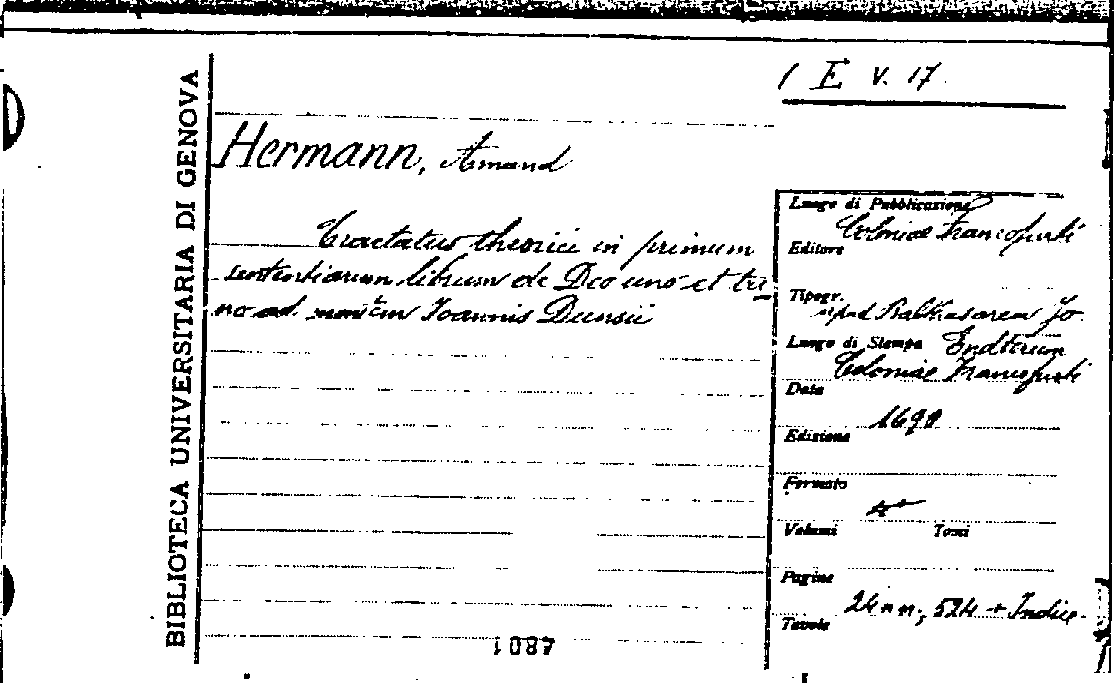 1 E V. 17
BIBLIOTECA UNIVERSITARIA DI GENOVA
Hermann, Amand
Tractatus theorici in primum
sententiarum librum de Deo uno et tri-
no ad Ioannis Dunsii
Luogo di Pubblicazione
Coloniae Francofurti
Editore
Tipogr.
apud Balthasarem Jo.
Luogo di Stampa Endterum
Coloniae Francofurti
Data
169
Edizione
Formato
4°
Volumi Tomi
Pagine
24 nn, 524 + Indice.
Tavole